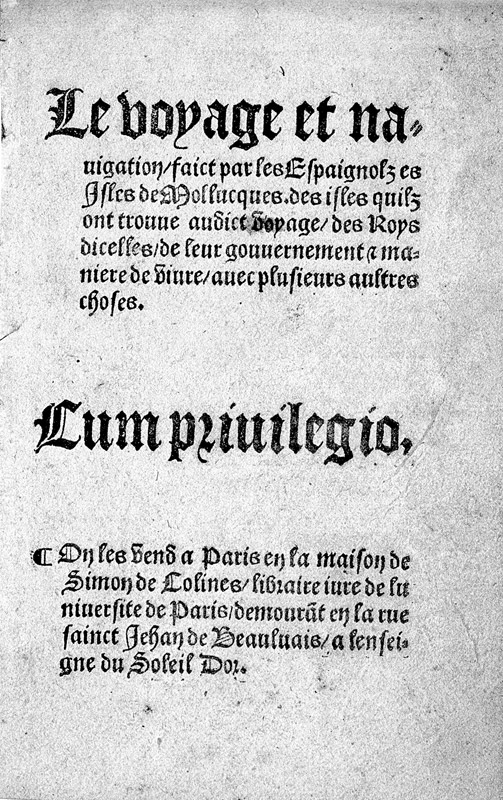 Le voyage et na⸗
uigation/faict par les Espaignolz es
Isles de Mollucques.des isles quilz
ont trouue audict voyage/des Roys
dicelles/de leur gouuernement ⁊ ma⸗
niere de viure/auec plusieurs aultres
choses.
Cum priuilegio.
¶ On les vend a Paris en la maison de
Simon de Colines/libraire iure de lu
niuersite de Paris/demourãt en la rue
sainct Jehan de Beauluais/a lensei⸗
gne du Soleil Dor.